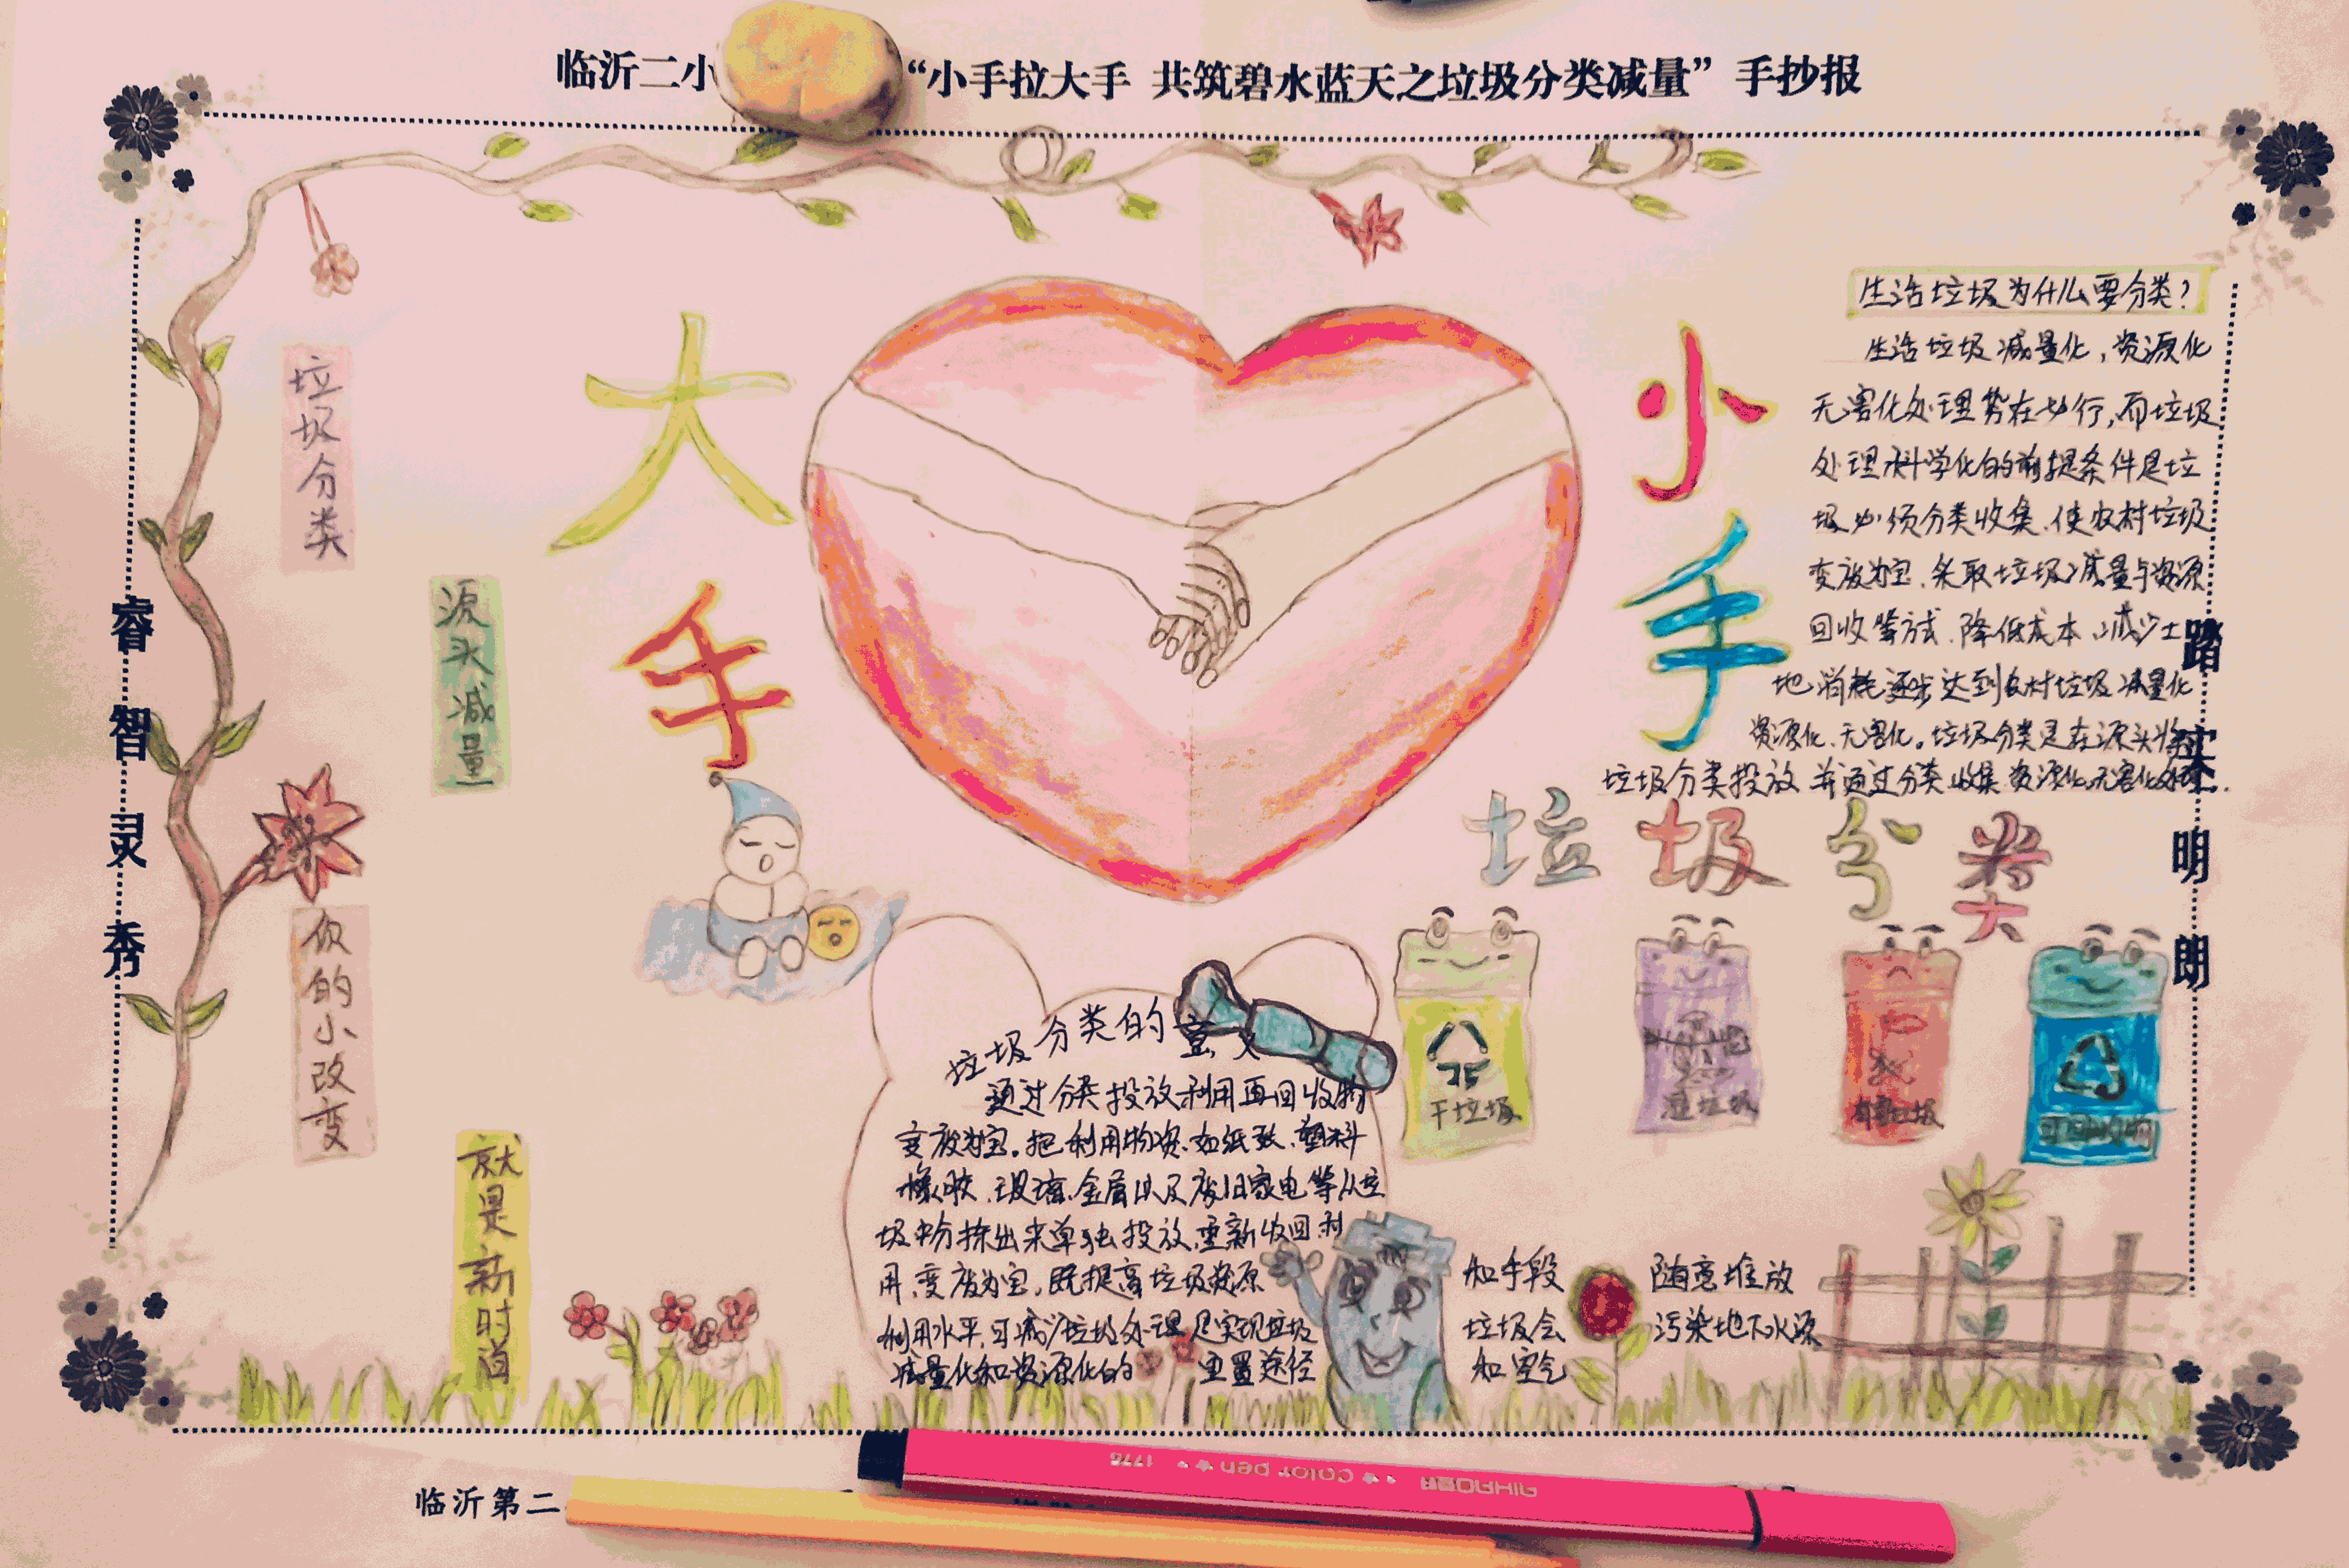 临沂二小
“小手拉大手 共筑碧水蓝天之垃圾分类减量”手抄报
睿智灵秀
垃圾分类
源头减量
你的小改变
就是新时尚
大手
小手
生活垃圾为什么要分类？
生活垃圾减量化，资源化
无害化处理势在必行，而垃圾
处理科学化的前提条件是垃
圾必须分类收集、使农村垃圾
变废为宝、采取垃圾减量与资源
回收等方式、降低成本、减少土
地消耗逐步达到农村垃圾减量化
资源化、无害化。垃圾分类是在源头将
垃圾分类投放 并通过分类收集 资源化无害化处理.
踏实明朗
垃圾分类
干垃圾
湿垃圾
有害垃圾
可回收物
垃圾分类的意义
通过分类投放利用再回收物
变废为宝。把利用物资、如纸张、塑料
橡胶、玻璃、金属以及废旧家电等从垃
圾中分拣出来单独投放，重新收回利
用，变废为宝，既提高垃圾资源
利用水平，可减少垃圾处理 是实现垃圾
减量化和资源化的 重置途径
和手段
垃圾会
和空气
随意堆放
污染地下水源
临沂第二
1776 Color pen AIHAO